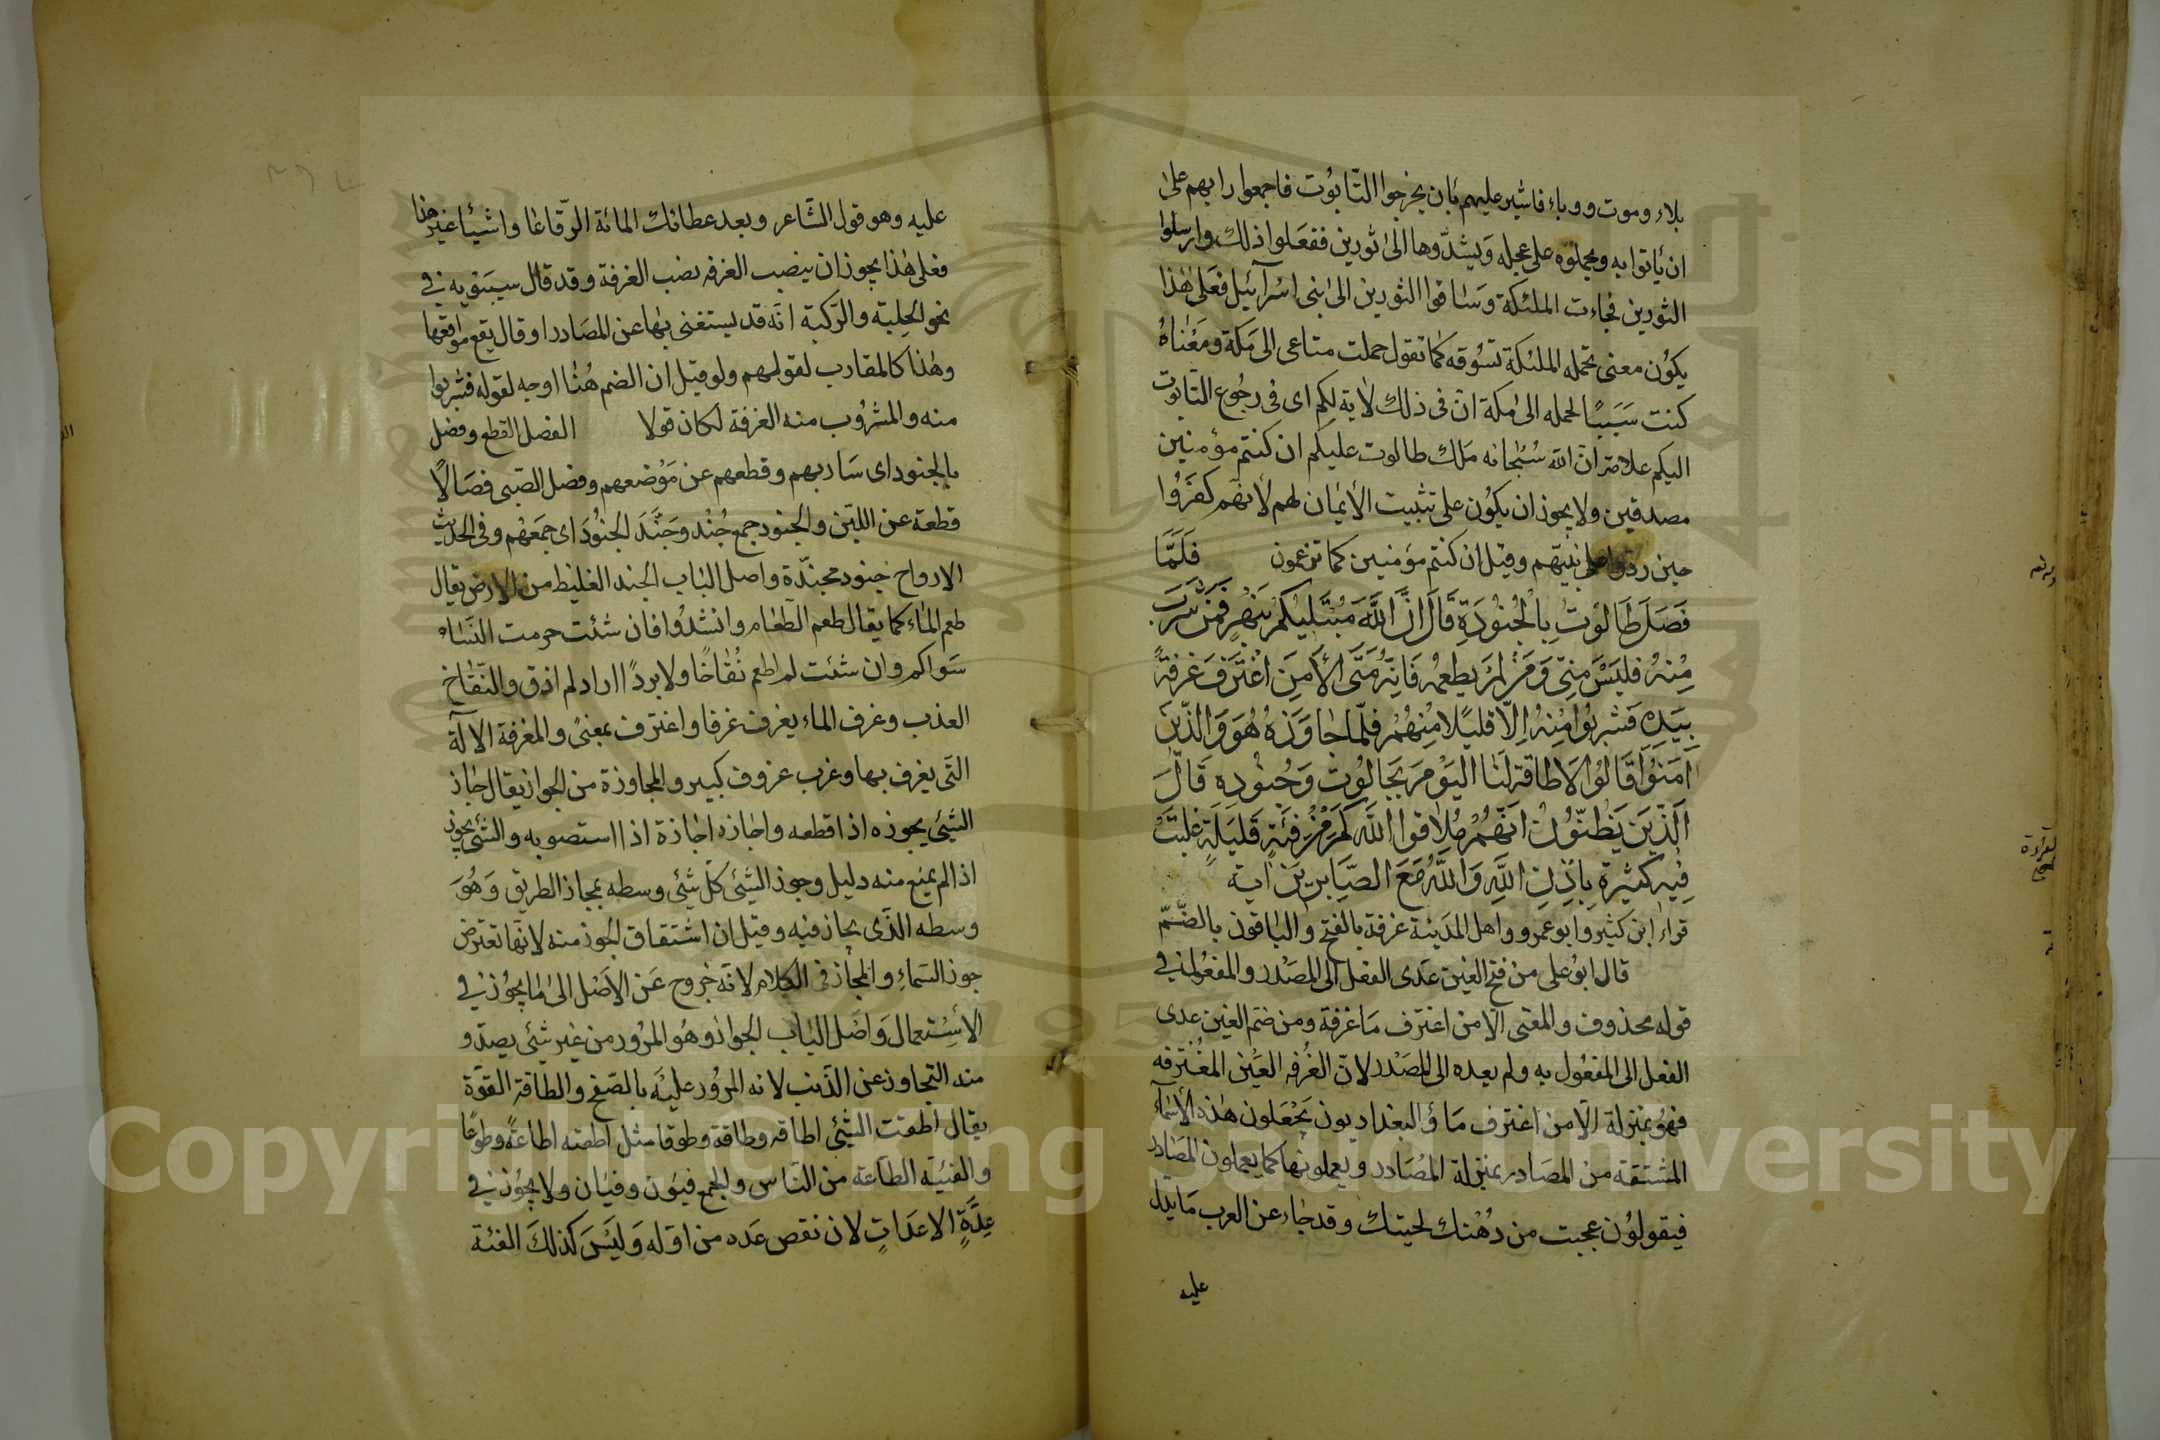 بلاء وموت ووباء فاشير عليهم بان يخرجوا التّابوت فاجمعوا رايهم على
ان ياتوا به ويحملوه على عجله ويشدّوها الى ثورين ففعلوا ذلك وارسلوا
الثورين فجاءت الملئكة وساقوا الثورين الى بنى اسرآئيل فعلى هذا
يكون معنى تحمله الملئكة تسوقه كما تقول حملت متاعى الى مكة ومعناه
كنت سببًا لحمله الى مكة انّ فى ذلك لاية لكم اى فى رجوع التّابوت
اليكم علامة انّ الله سبحانه ملك طالوت عليكم ان كنتم مؤمنين
مصدقين ولا يجوز ان يكون على تثبيت الايمان لهم لانهم كفروا
حين ردّوا على نبيّهم وقيل ان كنتم مؤمنين كما تزعمون فَلَمَّا
فَصَلَ طَالُوتُ بِالْجُنُودِ قَالَ اِنَّ اللَّهَ مُبْتَلِيكُمْ بِنَهَرٍ فَمَنْ شَرِبَ
مِنْهُ فَلَيْسَ مِنِّى وَمَنْ لَمْ يَطعمهُ فَاِنَّهُ مِنّى اِلَّا مَنِ اغْتَرَفَ غُرفَةً
بِيَدِهِ فَشَرِبُوا مِنْهُ اِلَّا قَليلًا مِنْهُمْ فَلَمَّا جَاوَزَهُ هُوَ وَالَّذِينَ
آمَنُوا قَالُوا لَا طَاقَةَ لَنَا الْيَوْمَ بِجَالُوتَ وَجُنُودِهِ قَالَ
الَّذِينَ يَظُنُّونَ اَنَّهُمْ مُلَاقُوا اللَّهَ كَمْ مِنْ فِئَةٍ قَلِيلَةٍ غَلَبَتْ
فِئَة كَثِيرة بِاِذْنِ اللَّهِ وَاللَّهُ مَعَ الصَّابِرِينَ آية
قراء ابن كثير وابو عمرو واهل المدينة غرفة بالفتح والباقون بالضّمّ
قال ابو على من فتح الغين عدى الفعل الى المصدر والمفعول فى
قوله محذوف والمعنى الّا من اغترف ماء غرفة ومن ضم الغين عدى
الفعل الى المفعول به ولم يعده الى المصدر لانّ الغُرفه العَين المغُترفه
فهو بمنزلة الّا من اغترف ماء والبغداديون يجعلون هذه الاسماء
المشتقة من المصادر بمنزلة المصادر ويعملونها كما يعملون المصادر
فيقولون عجبت من دُهنك لحيتك وقد جاء عن العرب ما يدل
عليه
عليه وهو قول الشّاعر وبعد عطائك المائة الرّتاعا واشيئا غير هنا
فعلى هذا يجوز ان ينصب الغرفه نصب الغرفة وقد قال سيبويه فى
نحو الجلية والرّكبة انّه قد يستغنى بها عن المصادر او قال يقع مواقعها
وهذا كالمقارب لقولهم ولو قيل ان الضم هُنا اوجه لقوله فشربوا
منه والمشروب منه الغرفة لكان قولا الفصل القطع وفصل
بالجنود اى سار بهم وقطعهم عن موضعهم وفصل الصّبى فصالًا
قطعة عن اللبن والجنود جمع جُنْد وجَنَّدَ الجنُودَ اى جمعهم وفى الحديث
الارواح جنود مجنّدة واصل الباب الجند الغليظ من الارض يقال
طعم الماء كما يقال طعم الطّعام وانشدوا فان شئت حرمت النّساء
سواكم وان شئت لم اطعم نُقاخًا ولا بردًا اراد لم اذق والنّقاخ
العذب وغرف الماء يغرف غرفا واغترف بمعنى والمغرفة الآلة
التّى يغرف بها وغرب غروف كبير والمجاوزة من الجواز يقال جاز
الشئ يجوزه اذا قطعه واجازه اجازة اذا استصوبه والشئ يجوز
اذا لم يمنع منه دليل وجوز الشئ كلّ شئ وسطه بمجاز الطريق وهُوَ
وسطه الذّى يجاز فيه وقيل ان اشتقاق الجوز منه لانها تعترض
جوز السّماءِ والمجاز فى الكلام لانّه خروج عن الاصل الى ما يجوز فى
الاستعمال واصل الباب الجواز وهو المرور من غير شئ يصدّ و
منه التّجاوز عن الذّنب لانه المرور عليه بالصّفح والطّاقة القوّة
يقال اطقت الشّئ اطاقه وطاقة وطوقا مثل اطعته اطاعةً وطوعًا
والفئيّة الطآعة من النّاس والجمع فيئون وفيان ولا يجوز فى
عدّةٍ الا عداتٍ لان نقص عده من اوله وليس كذلك الفئة